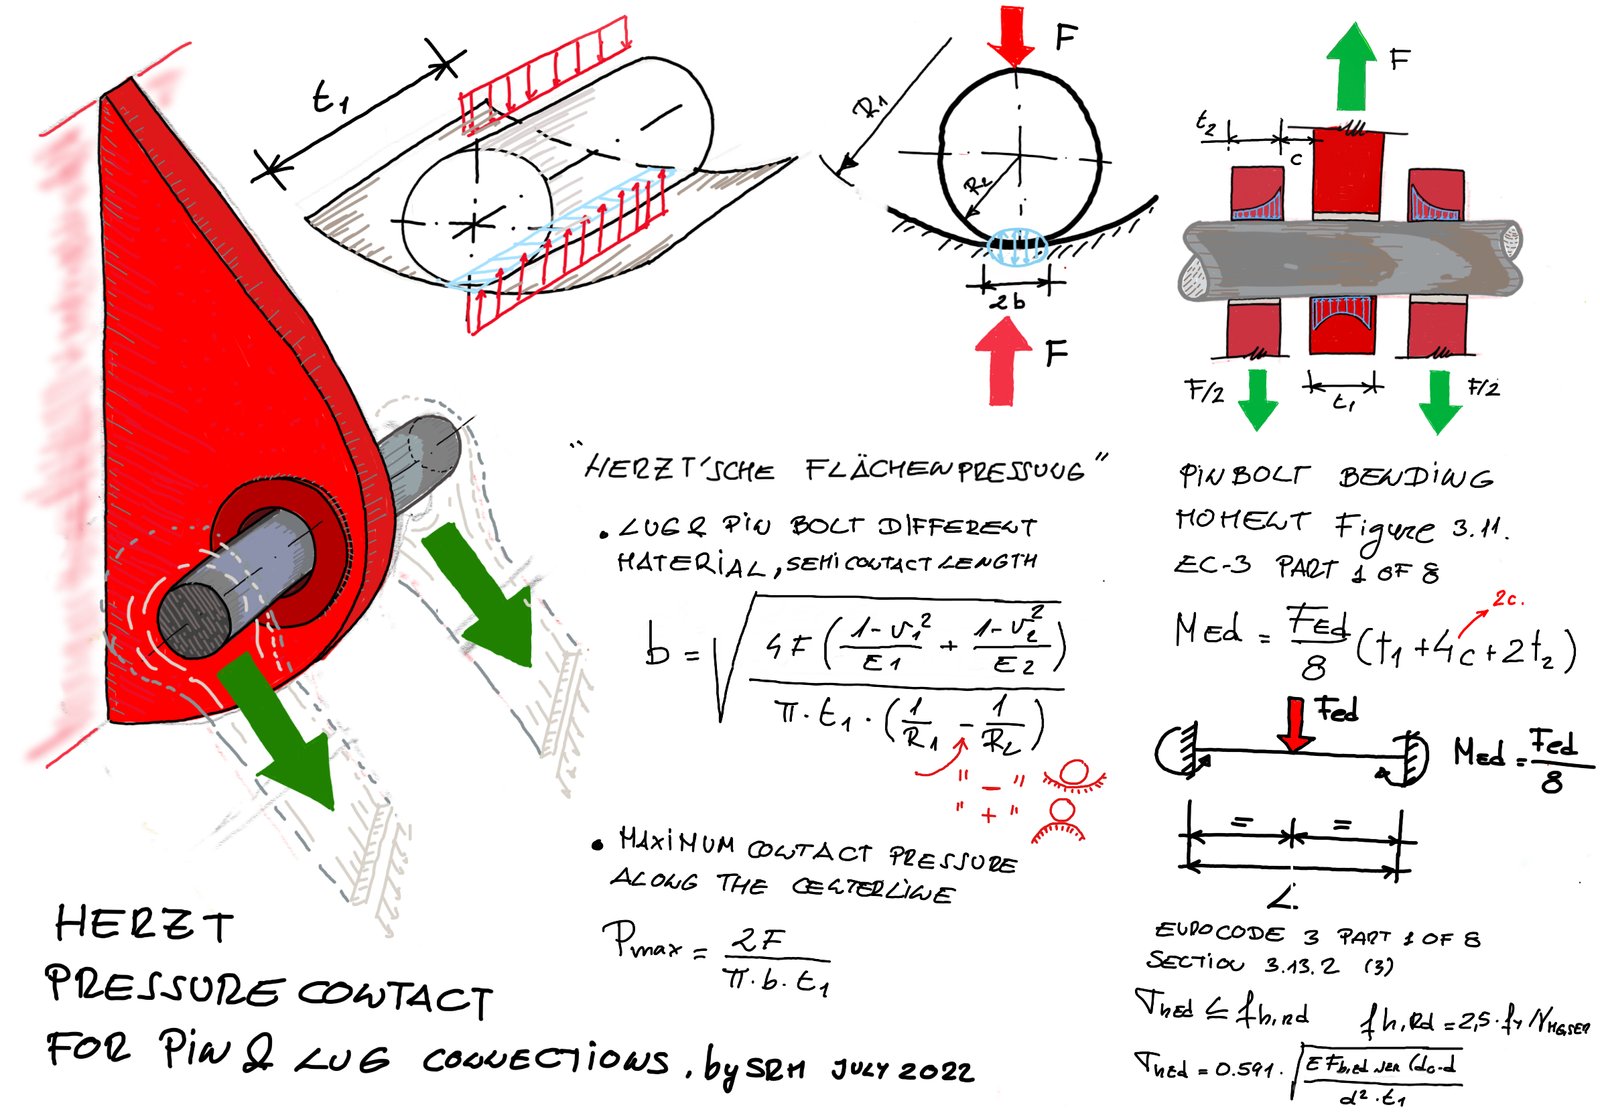 t1
F
R1
R2
2b
F
F
t2
c
F/2
t1
F/2
"HERZT'SCHE FLÄCHENPRESSUNG"
• LUG & PIN BOLT DIFFERENT
MATERIAL, SEMICONTACT LENGTH
b = √(4F((1-ν1²)/E1 + (1-ν2²)/E2) / (π · t1 · (1/R1 - 1/R2)))
" - "
" + "
• MAXIMUM CONTACT PRESSURE
ALONG THE CENTERLINE
Pmax = 2F / (π · b · t1)
PIN BOLT BENDING
MOMENT Figure 3.11.
EC-3 PART 1 OF 8
2c.
MEd = FEd/8 (t1 + 4c + 2t2)
Fed
MEd = Fed/8
= =
L.
EUROCODE 3 PART 1 OF 8
SECTION 3.13.2 (3)
σhEd ≤ fh,Rd fh,Rd = 2,5 · fy/γM6,SER
σhEd = 0.591 · √(E Fb,Ed,ser (do-d / d² · t1)
HERZT
PRESSURE CONTACT
FOR PIN & LUG CONNECTIONS. by SRM JULY 2022